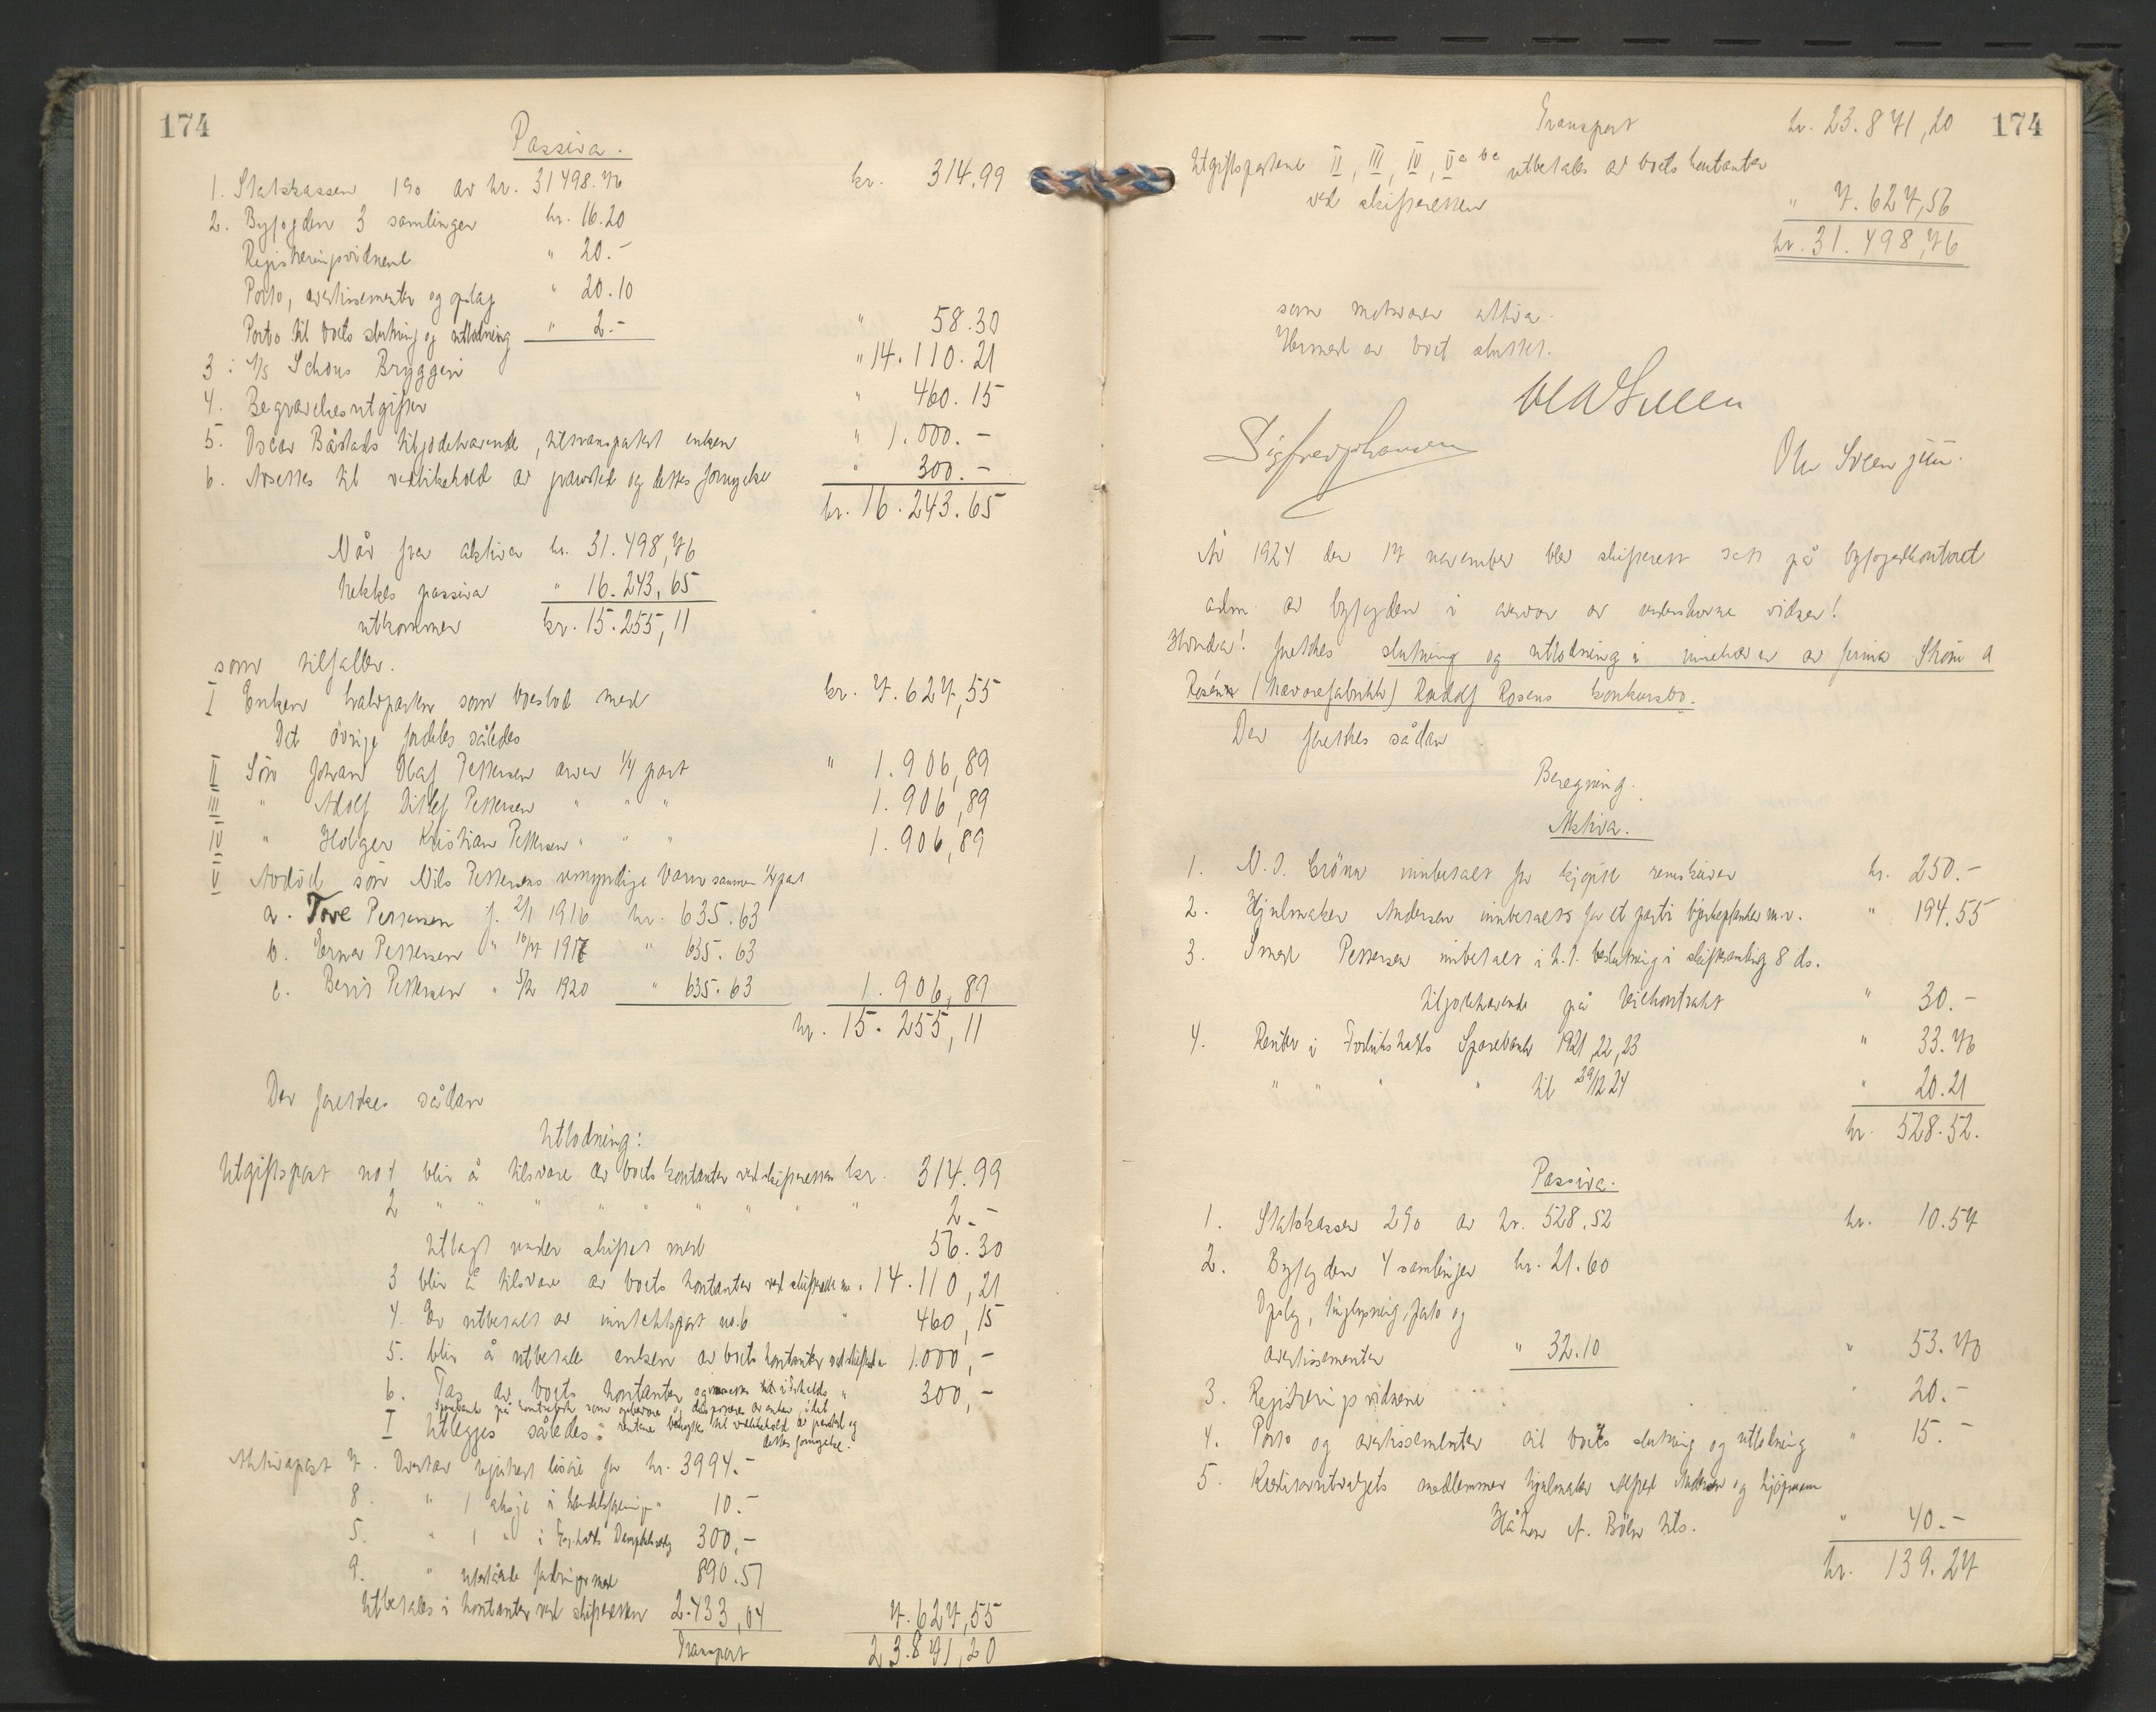 174
Passiva.
1. Statskassen 1% av kr. 31498.76 kr. 314.99
2. Byfogden 3 samlinger kr. 16.20
Registreringsvidnene " 20.-
Porto, avertissementer og oplag " 20.10
Porto til boets slutning og utlodning " 2.- " 58.30
3. A/S Schous Bryggeri " 14.110.21
4. Begravelsesutgifter " 460.15
5. Oscar Båstads tilgodehavende, tiltransportert enken " 1.000.-
6. Avsettes til vedlikehold av gravsted og dettes fornyelse " 300.-
kr. 16.243.65
Når fra aktiva kr. 31.498,76
trekkes passiva " 16.243,65
utkommer kr. 15.255,11
som tilfaller.
I Enken halvparten som boeslod med kr. 7.627,55
Det övrige fordeles således
II Sön Johan Olaf Pettersen arver 1/4 part " 1.906,89
III " Adolf Ditlef Pettersen " " " 1.906,89
IV " Holger Kristian Pettersen " " " 1.906,89
V Avdöd sön Nils Pettersens umyndige barn sammen 1/4 part
a. Tove Pettersen f. 2/1 1916 kr. 635.63
b. Erna Pettersen " 1917 " 635.63
c. Berit Pettersen " 5/2 1920 " 635.63 1.906,89
kr. 15.255,11
Der foretokes sådan
Utlodning:
Utgiftspost no 1 blir å tilsvare av boets kontanter ved skifteretten kr. 314.99
2 " " " " " " " " 2.-
Utlagt under skiftet med 56.30
3 blir å tilsvare av boets kontanter ved skifteretten m. 14.110,21
4. Er utbetalt av inntektspost no. 6 " 460,15
5. blir å utbetale enken av boets kontanter ved skifteretten 1.000,-
6. Tas av boets kontanter og " 300,-
rentene benyttes til vedlikehold av gravsted og
dettes fornyelse.
I Utlegges således:
Aktivapost 7. Overtar registrert lösöre for kr. 3994.-
8. " 1 aksje i " 10.-
5. " 1 " i 300,-
9. " utestående fordringer med 890.51
Utbetales i kontanter ved skifteretten 2.433,04 7.627,55
Transport 23.871,20
174
Transport kr. 23.871,20
Utgiftspostene II, III, IV, V a b c utbetales av boets kontanter
ved skifteretten " 7.627,56
kr. 31.498,76
som motsvarer aktiva.
Hermed er boet sluttet.
Ole Sveen jun.
År 1924 den 17 november blev skifterett satt på byfogedkontoret
adm. av byfogden i nærvær av undertegnede vidner!
Hvorda! foretokes slutning og utlodning i innehaver av firma Ström &
Rosén (trævarefabrikk) Rudolf Rosens konkursbo.
Der foretokes sådan
Beregning.
Aktiva.
1. N. J. Grönn innbetalt for kjöpte remskiver kr. 250.-
2. Hjulmaker Andersen innbetalt for et parti bjerkeplanker m.v. " 194.55
3. Smed Pettersen innbetalt i h.t. beslutning i skiftesamling 8 ds.
tilgodehavende på leiekontrakt " 30.-
4. Renter i Fredrikstads Sparebank 1921, 22, 23 " 33.76
" " " " til 29/12 24 " 20.21
kr. 528.52.
Passiva.
1. Statskassen 2% av kr. 528.52 kr. 10.57
2. Byfogden 4 samlinger kr. 21.60
Oplag, tinglysning, porto og
avertissementer " 32.10 " 53.70
3. Registreringsvidnene " 20.-
4. Porto og avertissementer til boets slutning og utlodning " 15.-
5. Kreditorutvalgets medlemmer hjulmaker Alfred Andersen og kjöpmann
Håkon A. Böhn tils. " 40.-
kr. 139.27